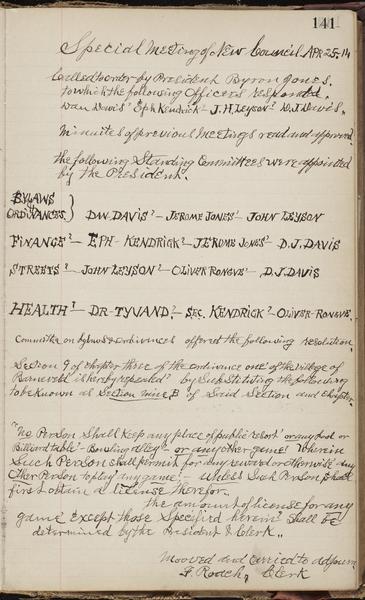 141
Special Meeting of New Council Apr-25-14
Called to order by President Byron Jones.
to which the following Officers responded.
Dan Davis? Eph Kendrick? J. H. Leyson? D. J. Davis.
Minutes of previous Meetings read and approved
the following Standing Committees were appointed
by the President.
BYLAWS
&
ORDINANCES } DAN. DAVIS? - JEROME JONES? - JOHN LEYSON
FINANCE? - EPH - KENDRICK? - JEROME JONES? - D. J. DAVIS
STREETS? - JOHN LEYSON? - OLIVER RONGVE? - D. J. DAVIS
HEALTH? - DR-TYVAND? - SEC. KENDRICK? - OLIVER-RONGVE.
Committee on bylaws & ordinances offered the following resolution.
Section 9 of chapter three of the ordinance one of the village of
Barneveld is hereby repealed? by Substituting the following
to be known as Section nine B of said Section and chapter.
"No Person Shall Keep any place of public resort or any pool or
Billiard table? - Bowling alley? - or any other game? Wherein
Such Person shall permit for any reward or otherwise any
Other Person to play any game? - Unless Such Person Shall
first obtain a license therefor.
the amount of license for any
game except those Specified herein? Shall be
determined by the President & Clerk..
Mooved and carried to adjourn
F. Roach, Clerk